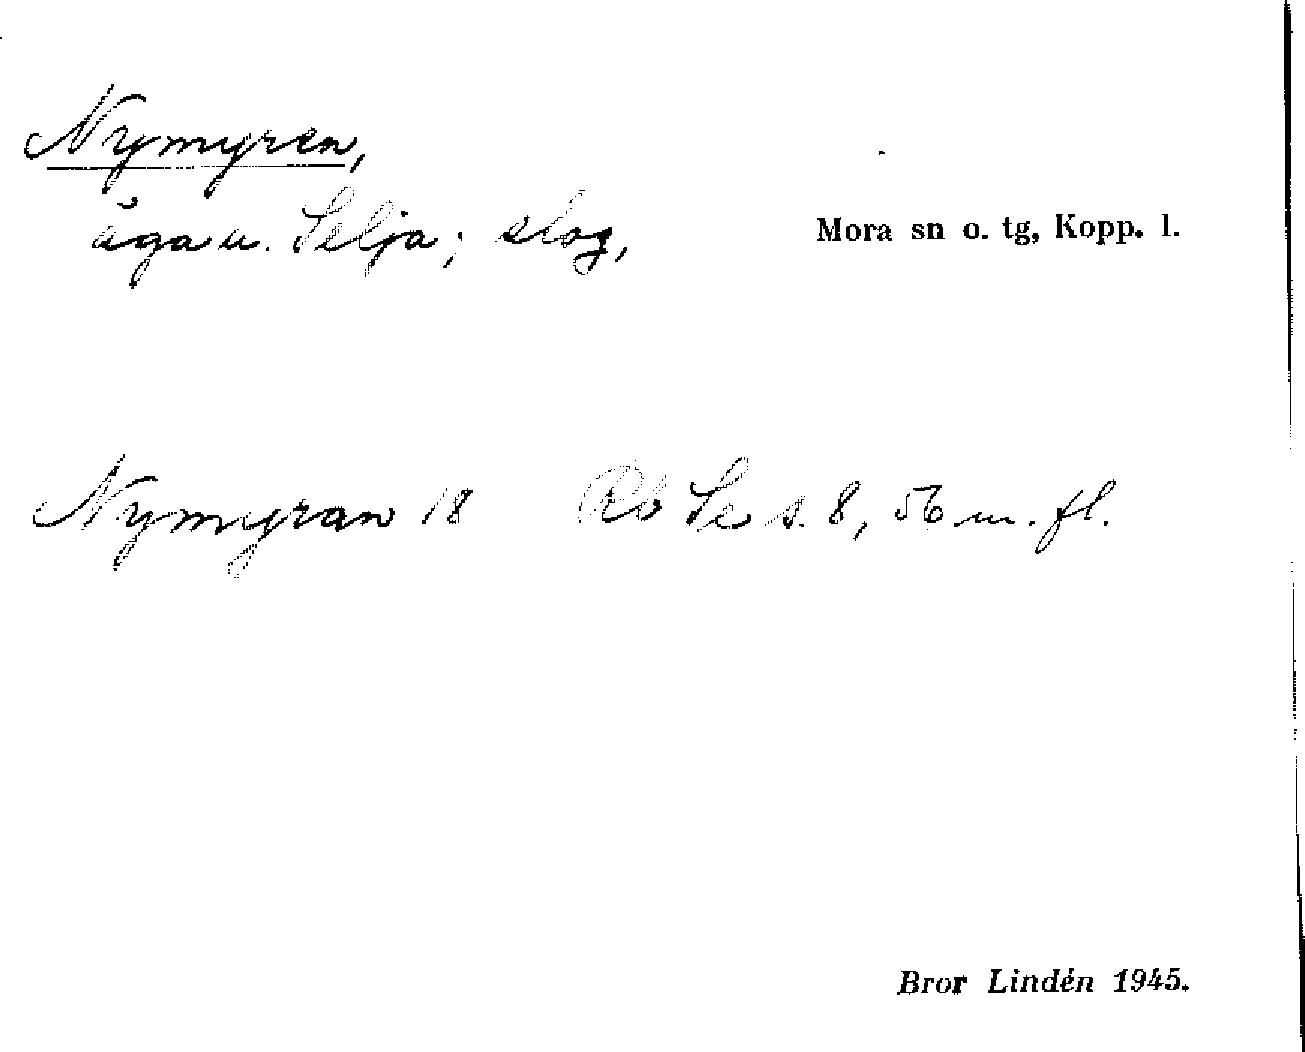 Nymyren,
äga u. Selja; slog,
Mora sn o. tg, Kopp. l.
Nymyran 18 Rb Se s. 8, 56 m. fl.
Bror Lindén 1945.